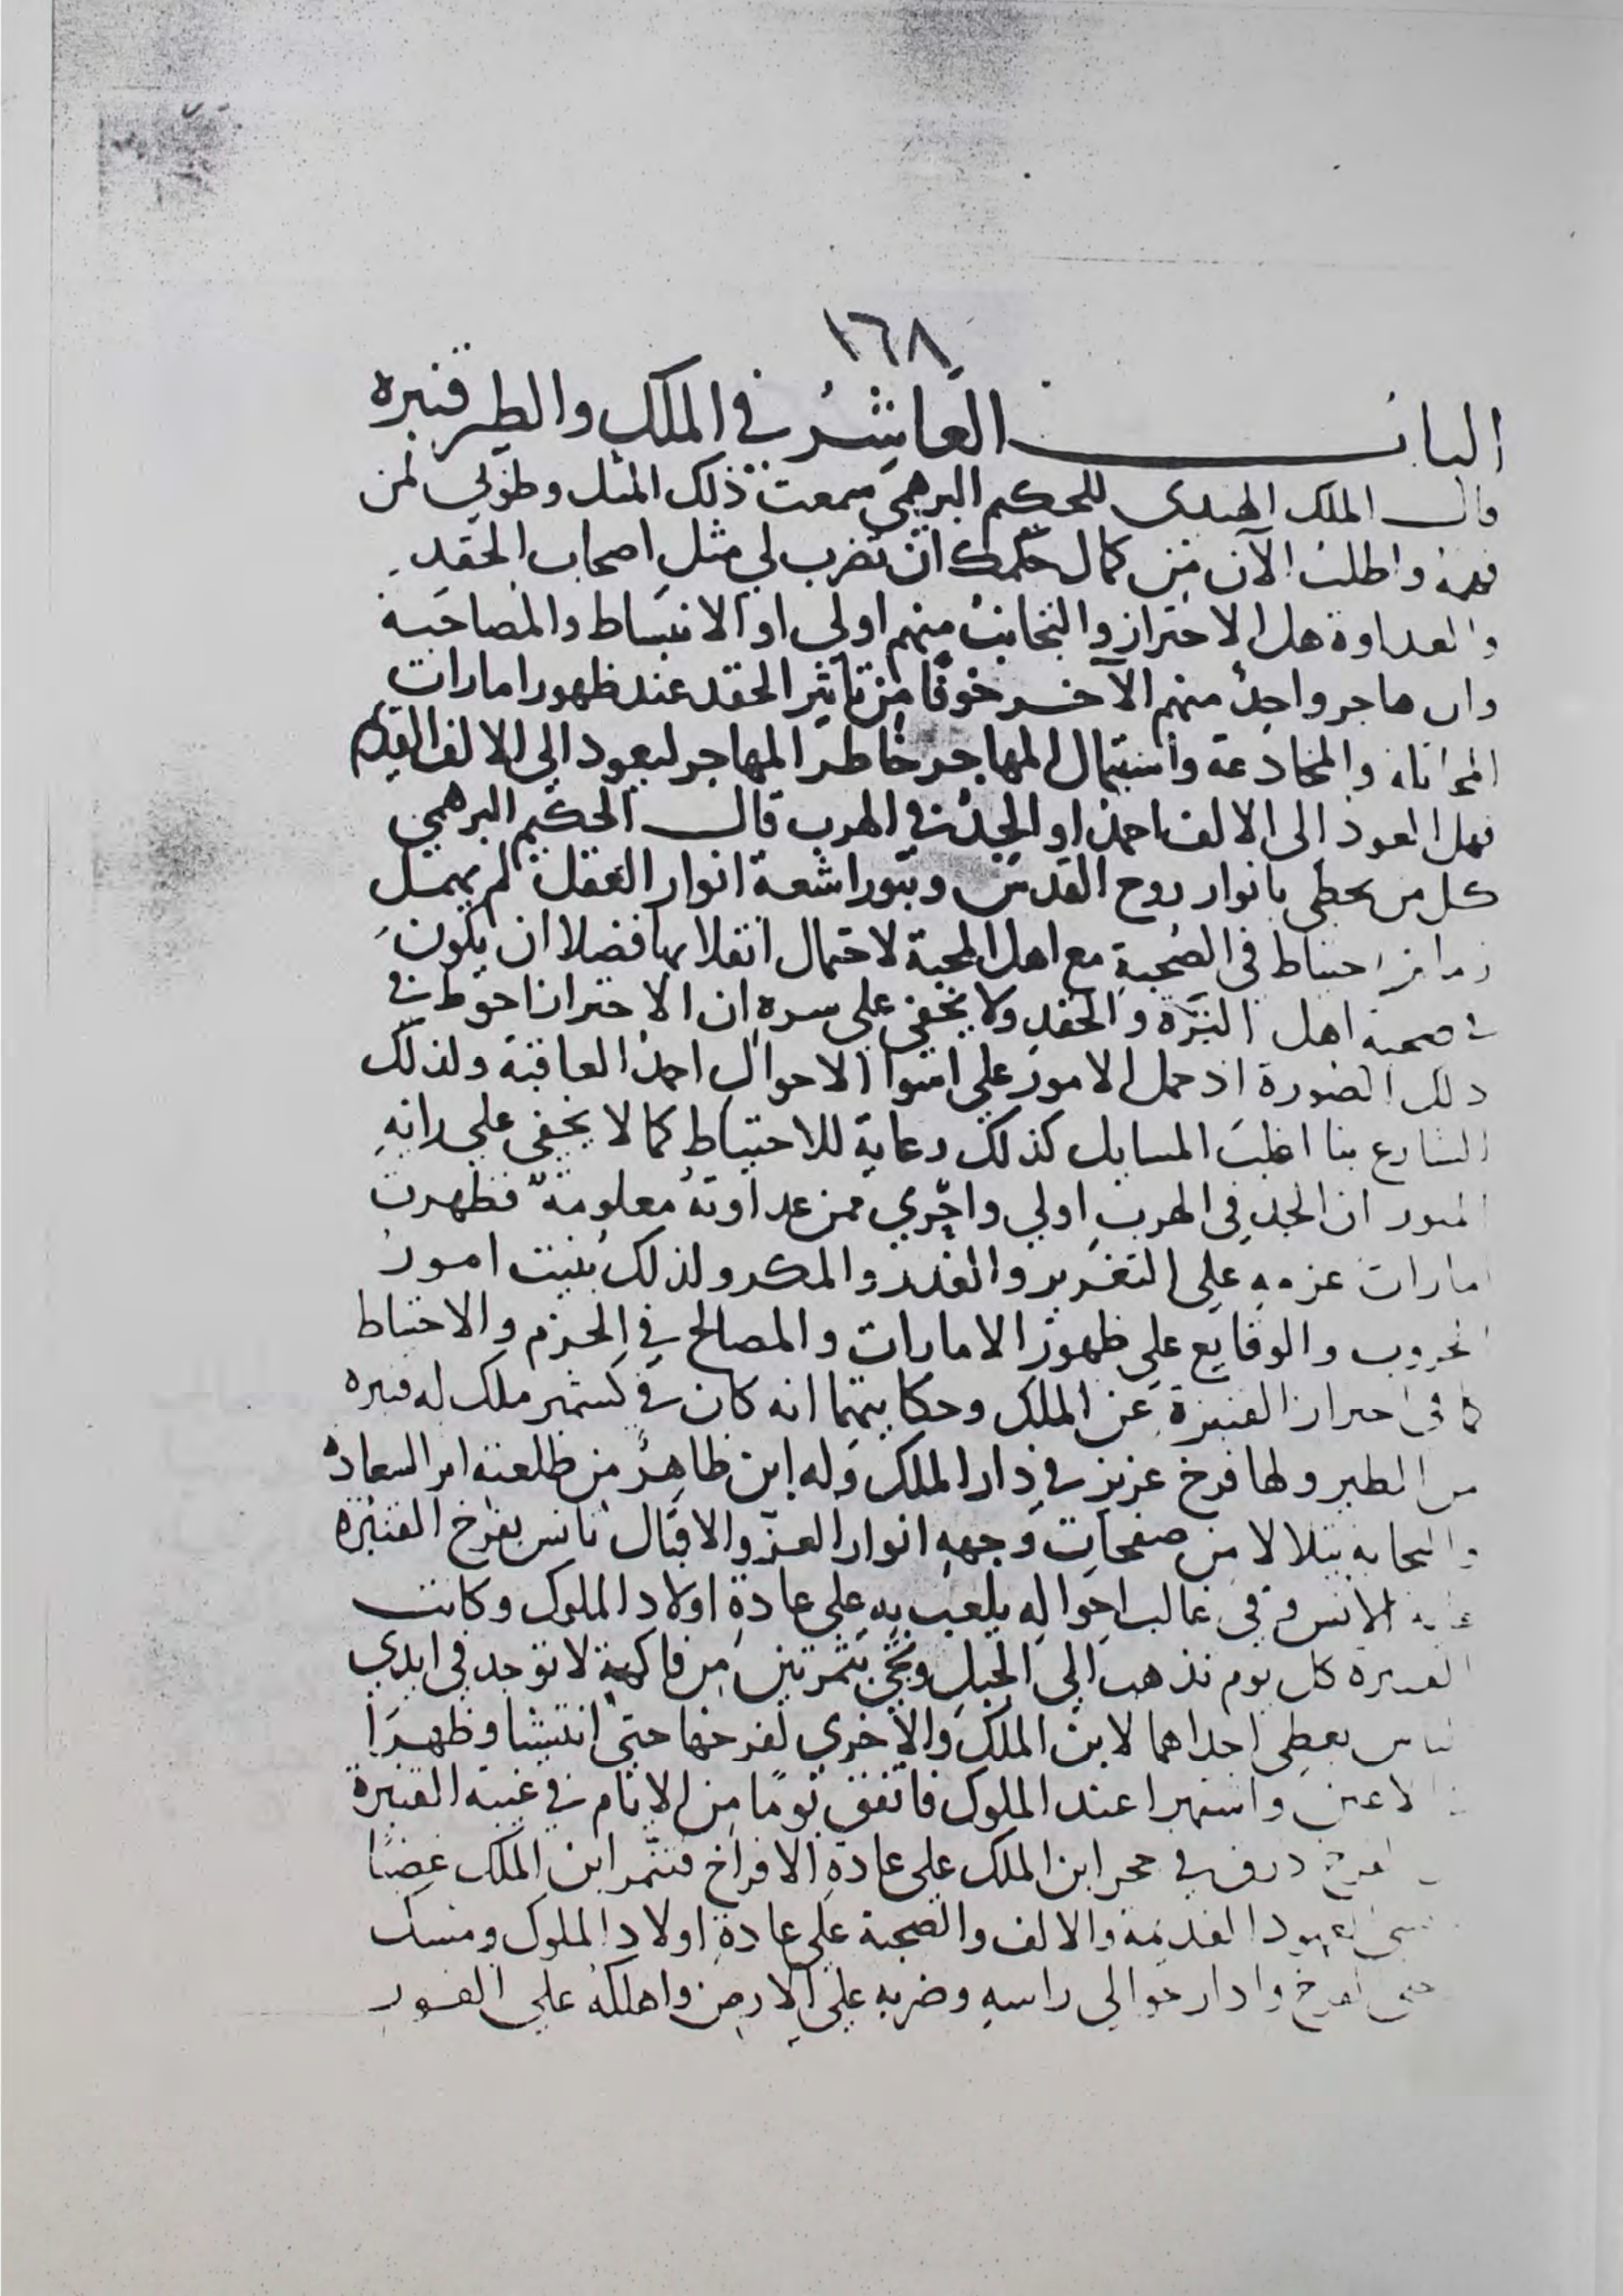 ١٦٨
الباب العاشر في الملك والطير قنبره
قال الملك الهندي للحكيم البرهمي سمعت ذلك المثل وطوبي لمن
فهمه واطلب الآن من كمال حكمك ان تضرب لي مثل اصحاب الحقد
والعداوة هل الاحتراز والتجانب منهم اولي او الانبساط والمصاحبة
وان هاجر واحد منهم الآخر خوفا من تاثير الحقد عند ظهور امارات
والمخادعة واستمال المهاجر خاطر المهاجر ليعود الي الالف القديم
فهل العود الى الالف احمد او الجد في الهرب قال الحكيم البرهمي
كل من يحظي بانوار روح القدس وبنور اشعة انوار العقل لم يهمل
احتياط في الصحبة مع اهل المحبة لاحتمال انقلابها فضلا ان يكون
في صحبة اهل التِرَة والحقد ولا يخفي علي سره ان الاحتراز احوط في
ذلك الصورة اذ حمل الامور علي اسوا الاحوال احمد العاقبة ولذلك
الشارع بنا اغلب المسايل كذلك رعاية للاحتياط كما لا يخفي علي رائه
المنور ان الجد في الهرب اولي واحري ممن عداوته معلومة فظهرت
امارات عزمه علي التغرير والغدر والمكر ولذلك بنيت امور
الحروب والوقايع علي ظهور الامارات والمصالح في الحزم والاحتياط
كما في احتراز القنبرة عن الملك وحكايتهما انه كان في كشمير ملك له قنبره
من الطير ولها فرخ عزيز في دار الملك وله ابن ظاهر من طلعته اثر السعادة
والنجابه يتلالا من صفحات وجهه انوار العز والاقبال تانس بفرخ القنبره
غاية الانس وفي غالب احواله يلعب به علي عادة اولاد الملوك وكانت
القنبره كل يوم تذهب الي الجبل وتجي بثمرتين من فاكهة لا توجد في ايدي
الناس يعطي احداهما لابن الملك والاخري لفرخها حتي انتشا وظهرا
الاعين واشتهرا عند الملوك فاتفق يوما من الايام في غيبة القنبرة
الفرخ ذرق في حجر ابن الملك علي عادة الافراخ فتنمر ابن الملك غضبا
العهود القديمة والالف والصحبة علي عادة اولاد الملوك ومسك
الفرخ وادار حوالي راسه وضربه علي الارض واهلكه علي الفور